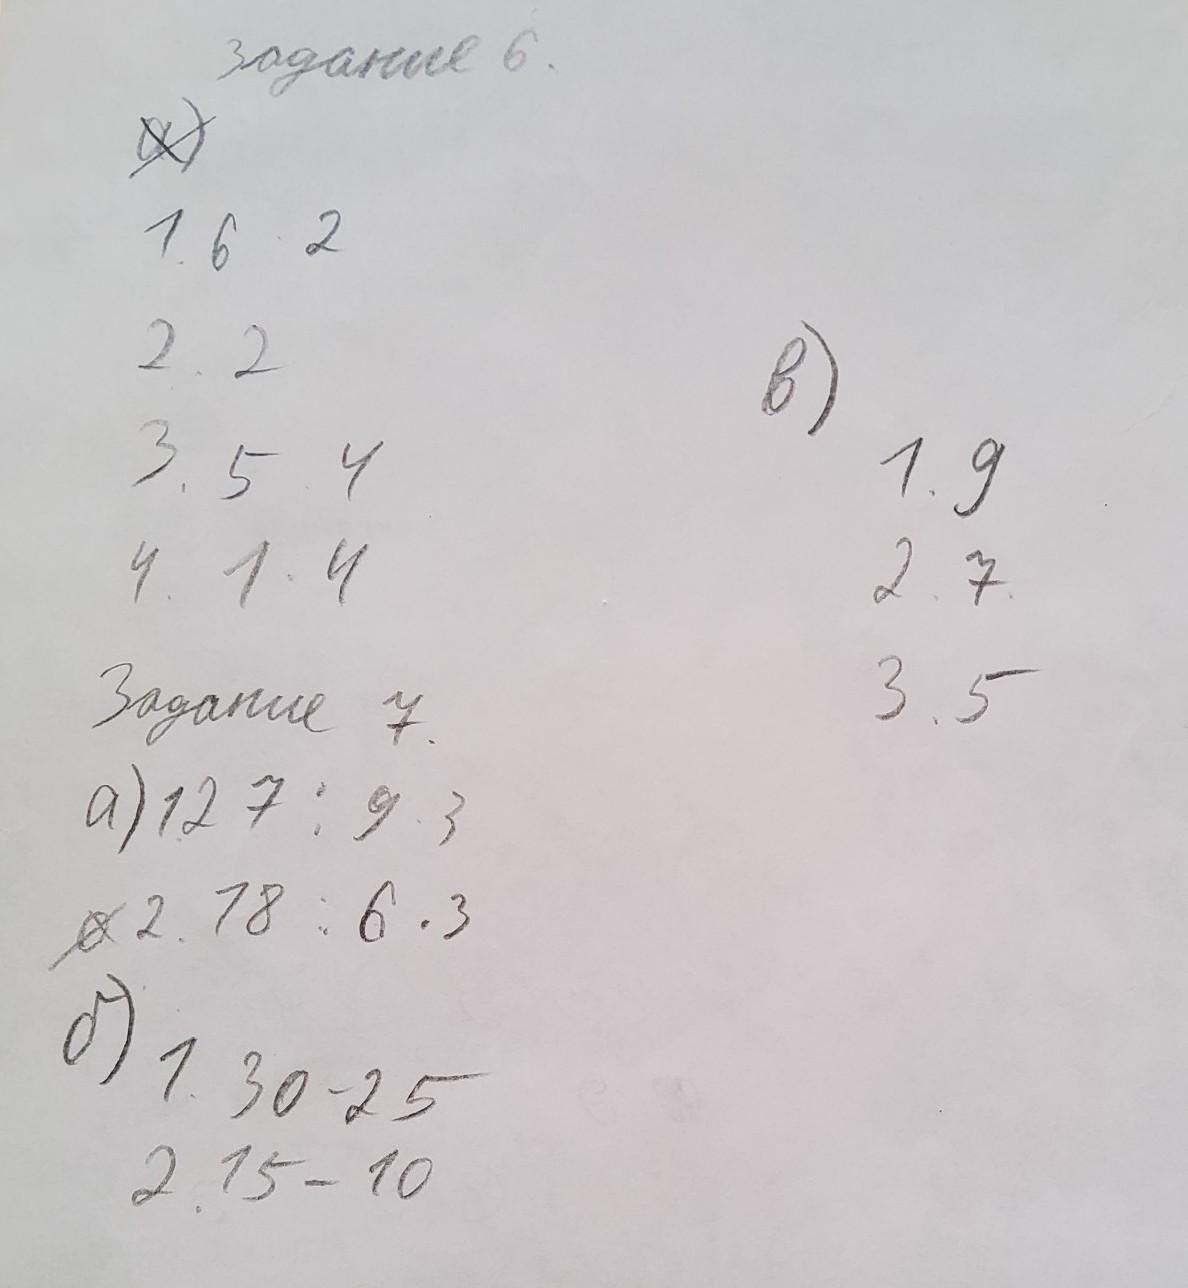 Задание 6.
а)
1. 6 · 2
2. 2
3. 5 · 4
4. 1 · 4
Задание 7.
а) 1. 27 : 9 · 3
2. 18 : 6 · 3
б)
1. 30 - 25
2. 15 - 10
в)
1. 9
2. 7.
3. 5